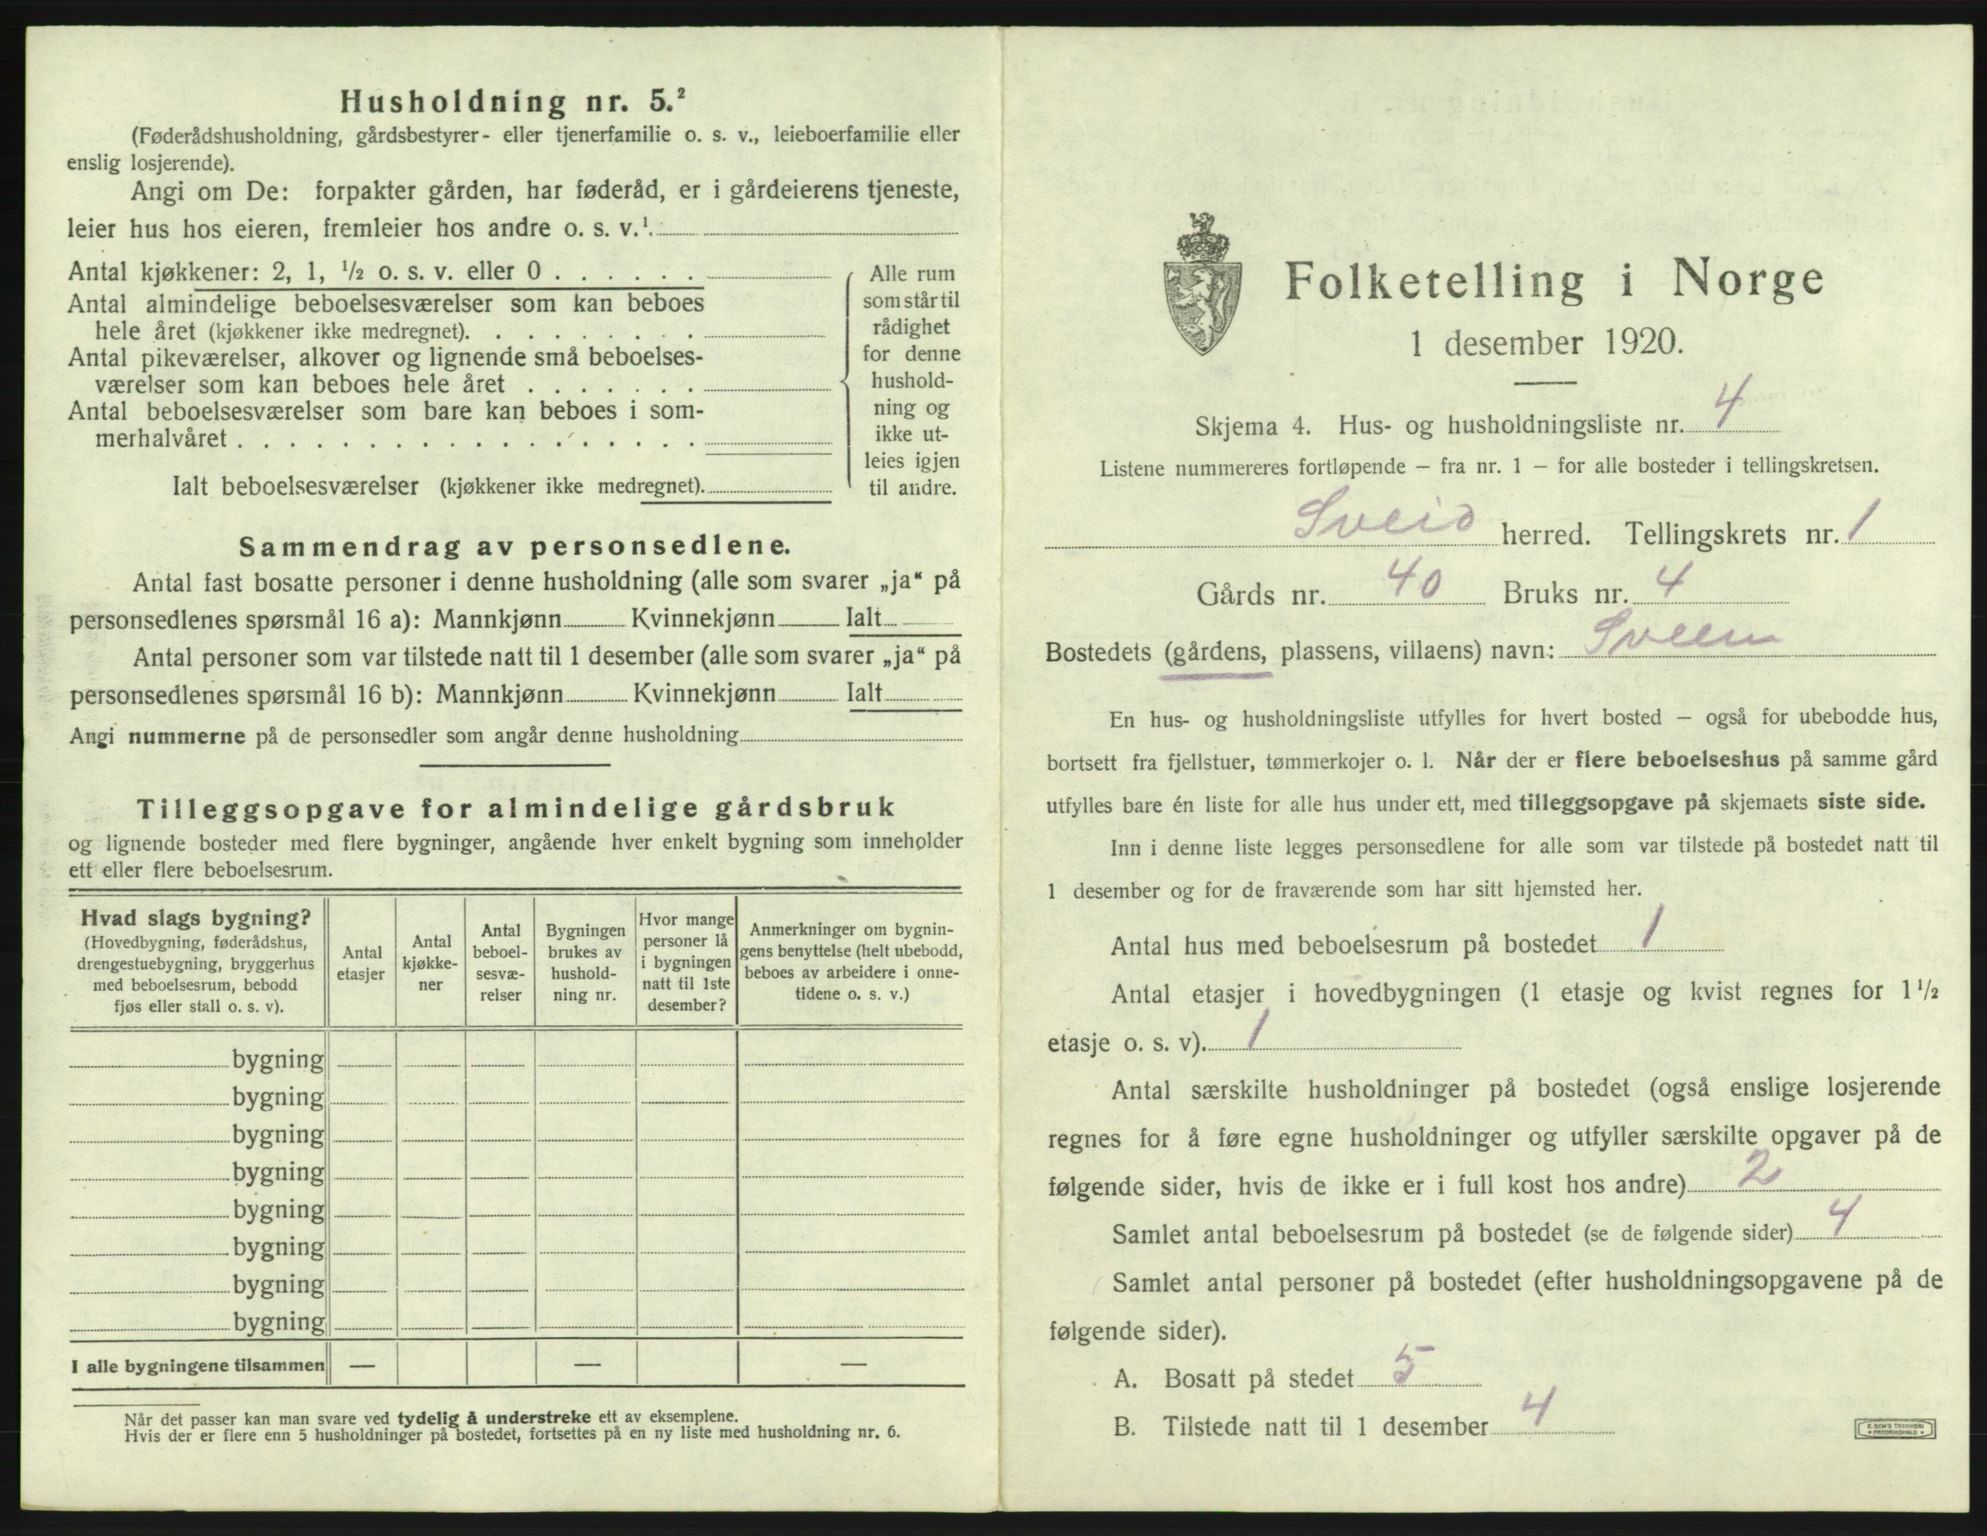 Husholdning nr. 5.²
(Føderådshusholdning, gårdsbestyrer- eller tjenerfamilie o. s. v., leieboerfamilie eller
enslig losjerende).
Angi om De: forpakter gården, har føderåd, er i gårdeierens tjeneste,
leier hus hos eieren, fremleier hos andre o. s. v.¹.
Antal kjøkkener: 2, 1, ½ o. s. v. eller 0 . . . . . .
Antal almindelige beboelsesværelser som kan beboes
hele året (kjøkkener ikke medregnet). . . . . . . . .
Antal pikeværelser, alkover og lignende små beboelses-
værelser som kan beboes hele året . . . . . . .
Antal beboelsesværelser som bare kan beboes i som-
merhalvåret . . . . . . . . . . . . . . . . . .
Ialt beboelsesværelser (kjøkkener ikke medregnet).
Alle rum
som står til
rådighet
for denne
hushold-
ning og
ikke ut-
leies igjen
til andre.
Sammendrag av personsedlene.
Antal fast bosatte personer i denne husholdning (alle som svarer „ja“ på
personsedlenes spørsmål 16 a): Mannkjønn Kvinnekjønn Ialt
Antal personer som var tilstede natt til 1 desember (alle som svarer „ja“ på
personsedlenes spørsmål 16 b): Mannkjønn Kvinnekjønn Ialt
Angi nummerne på de personsedler som angår denne husholdning
Tilleggsopgave for almindelige gårdsbruk
og lignende bosteder med flere bygninger, angående hver enkelt bygning som inneholder
ett eller flere beboelsesrum.
Hvad slags bygning?
(Hovedbygning, føderådshus,
drengestuebygning, bryggerhus
med beboelsesrum, bebodd
fjøs eller stall o. s. v).
Antal
etasjer
Antal
kjøkke-
ner
Antal
beboel-
sesvæ-
relser
Bygningen
brukes av
hushold-
ning nr.
Hvor mange
personer lå
i bygningen
natt til 1ste
desember?
Anmerkninger om bygnin-
gens benyttelse (helt ubebodd,
beboes av arbeidere i onne-
tidene o. s. v.)
bygning
bygning
bygning
bygning
bygning
bygning
bygning
bygning
I alle bygningene tilsammen — — —
Når det passer kan man svare ved tydelig å understreke ett av eksemplene.
Hvis der er flere enn 5 husholdninger på bostedet, fortsettes på en ny liste med husholdning nr. 6.
Folketelling i Norge
1 desember 1920.
Skjema 4. Hus- og husholdningsliste nr. 4
Listene nummereres fortløpende – fra nr. 1 – for alle bosteder i tellingskretsen.
Sveio herred. Tellingskrets nr. 1
Gårds nr. 40 Bruks nr. 4
Bostedets (gårdens, plassens, villaens) navn: Sveen
En hus- og husholdningsliste utfylles for hvert bosted – også for ubebodde hus,
bortsett fra fjellstuer, tømmerkojer o. l. Når der er flere beboelseshus på samme gård
utfylles bare én liste for alle hus under ett, med tilleggsopgave på skjemaets siste side.
Inn i denne liste legges personsedlene for alle som var tilstede på bostedet natt til
1 desember og for de fraværende som har sitt hjemsted her.
Antal hus med beboelsesrum på bostedet 1
Antal etasjer i hovedbygningen (1 etasje og kvist regnes for 1½
etasje o. s. v). 1
Antal særskilte husholdninger på bostedet (også enslige losjerende
regnes for å føre egne husholdninger og utfyller særskilte opgaver på de
følgende sider, hvis de ikke er i full kost hos andre) 2
Samlet antal beboelsesrum på bostedet (se de følgende sider) 4
Samlet antal personer på bostedet (efter husholdningsopgavene på de
følgende sider).
A. Bosatt på stedet 5
B. Tilstede natt til 1 desember 4
E. SEM'S TRYKKERI
FREDRIKSHALD